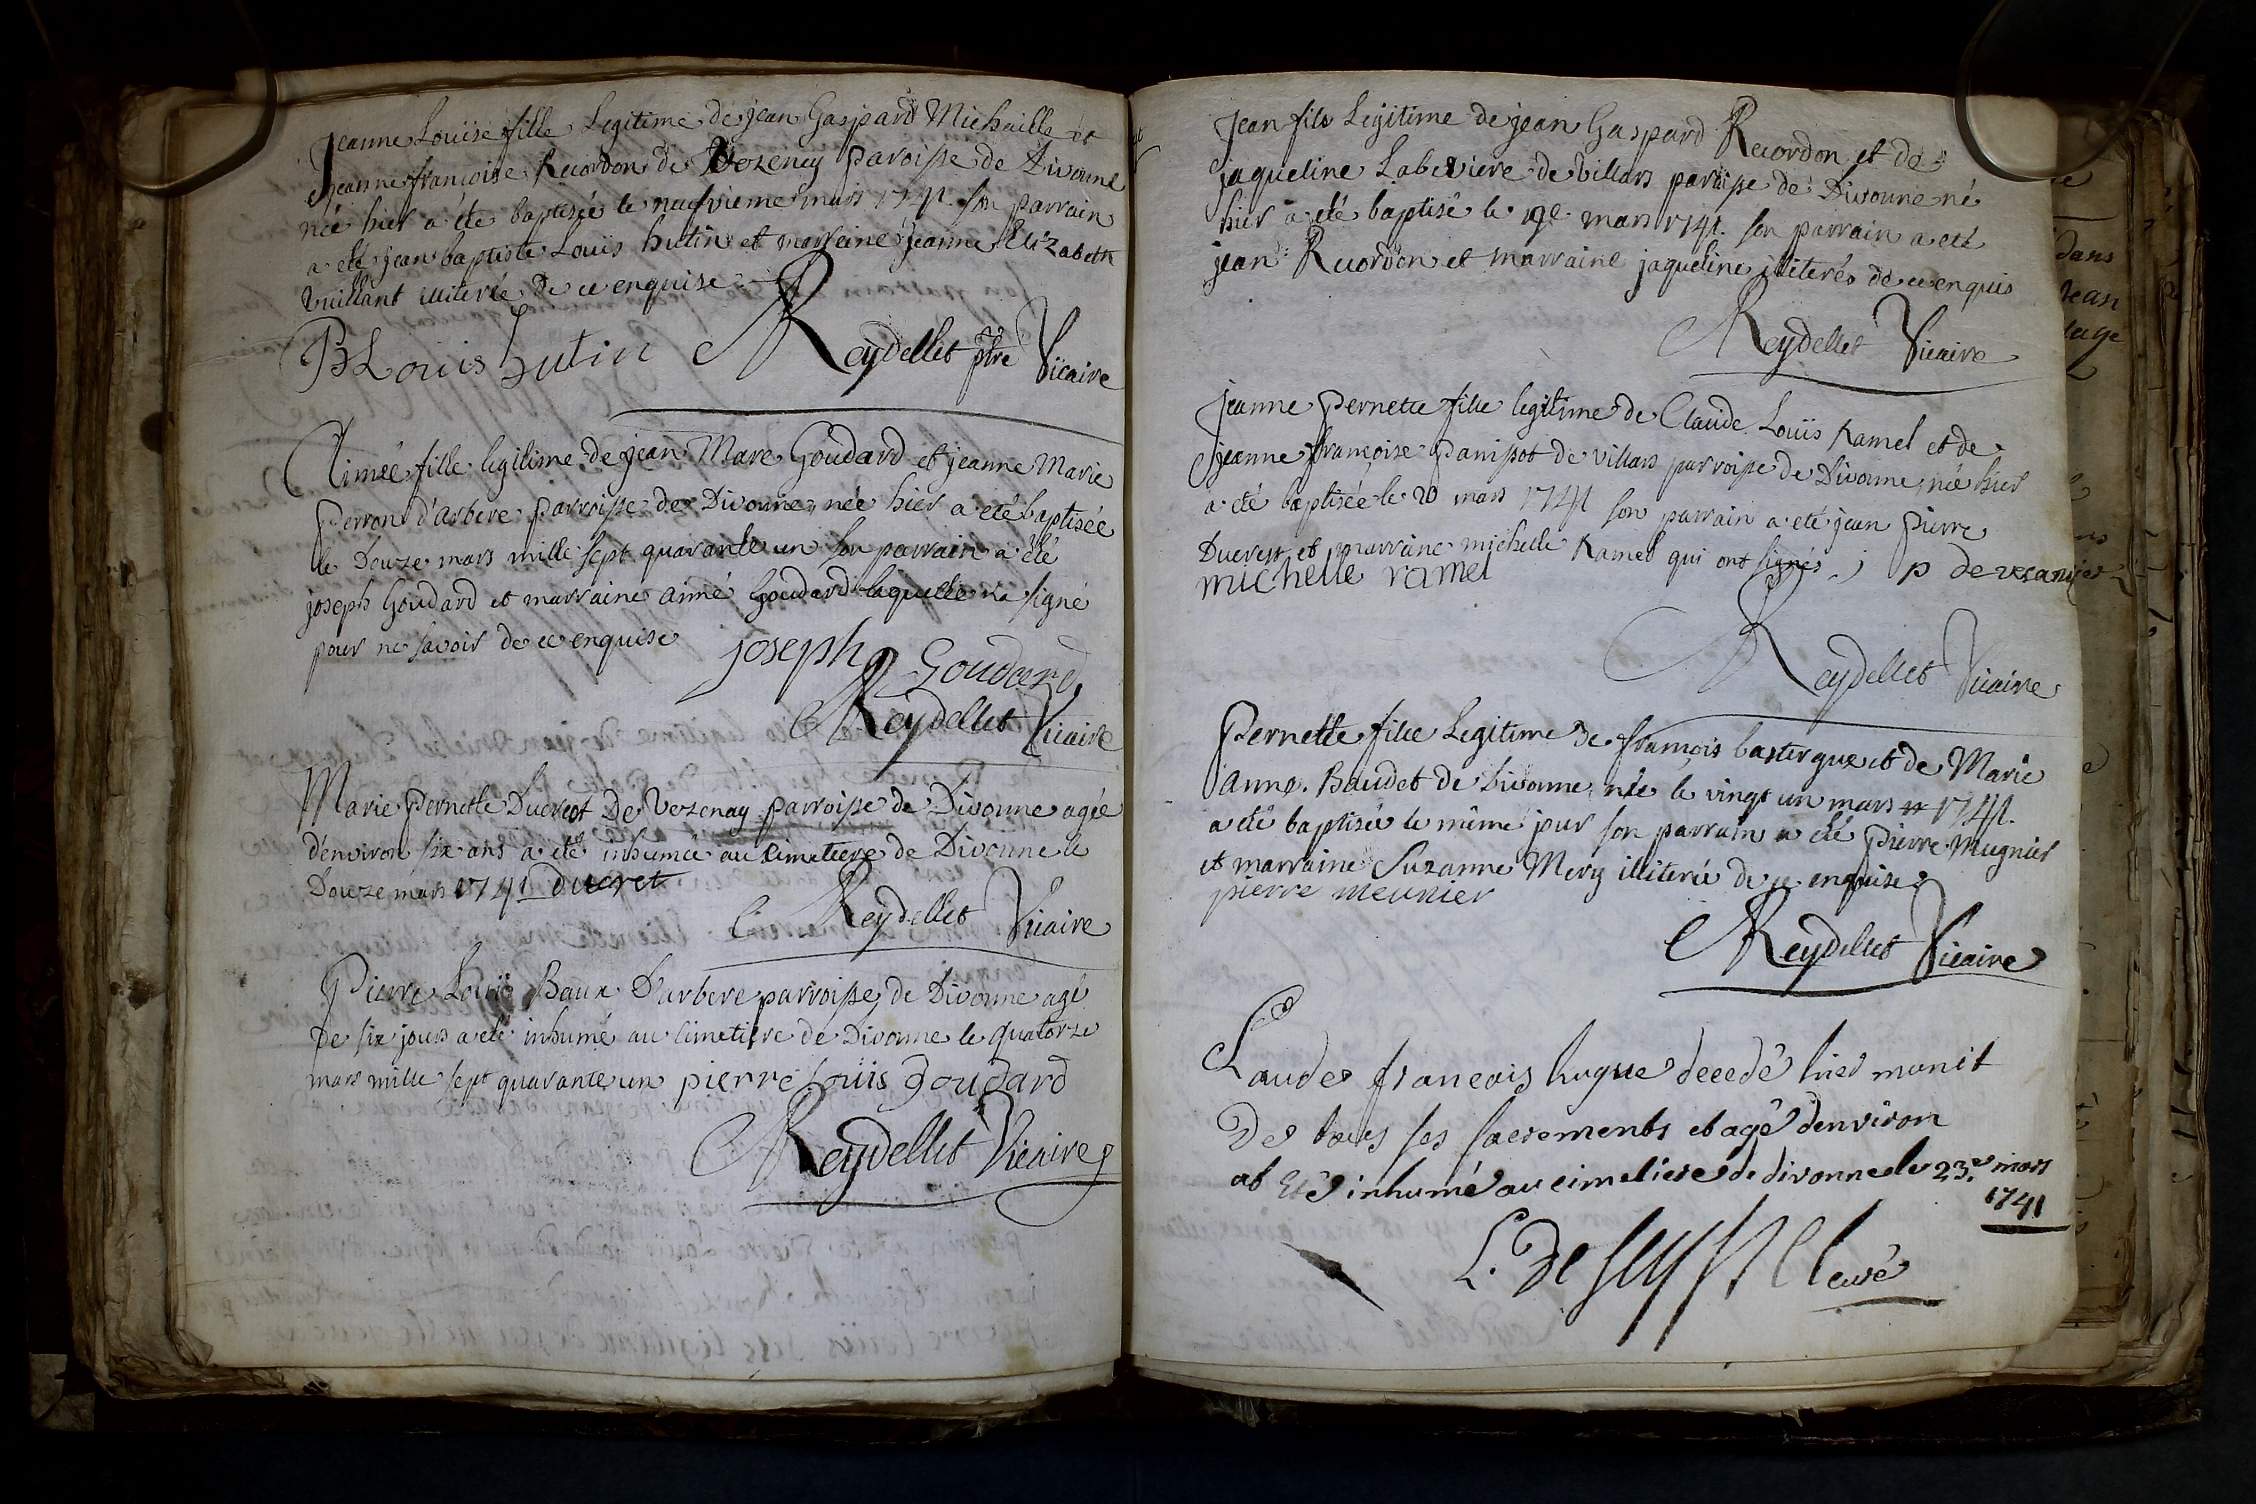 Jeanne Louïse fille Legitime de jean Gaspard Michaille et
Jeanne françoise Recordon de Vezeney paroisse de Divonne
née hier a été baptisée le neufvieme mars 1741. son parrain
a eté jean baptiste Louïs hutin et marreine Jeanne Elizabeth
Vuillant illiterée de ce enquise
B Louis hutin Reydellet ptre Vicaire
Aimée fille legitime de jean Marc Goudard et jeanne Marie
Perron d'arbere parroisse de Divonne née hier a eté baptisée
le Douze mars mille sept quarante un son parrain a été
joseph Goudard et marraine aimé Goudard laquelle na signé
pour ne savoir de ce enquise
joseph Goudard
Reydellet Vicaire
Marie Pernette Ducret De Vezenay parroisse de Divonne agée
d'environ six ans a eté inhumée au cimetiere de Divonne le
Douze mars 1741 Ducret
Reydellet Vicaire
Pierre Louïs Baux D'arbere parroisse de Divonne agé
de six jours a eté inhumé au cimetiere de Divonne le quatorze
mars mille sept quarante un pierre Louïs Goudard
Reydellet Vicaire
Jean fils Legitime de jean Gaspard Recordon et de
jaqueline Labeviere de villars paroisse de Divonne né
hier a eté baptisé le 19e mars 1741. son parrain a eté
jean Recordon et marraine jaqueline illiterés de ce enquis
Reydellet Vicaire
Jeanne Pernette fille legitime de Claude Louïs Ramel et de
jeanne françoise Panissot de villars parroisse de Divonne née hier
a été baptisée le 20 mars 1741 son parrain a eté jean Pierre
Ducrest et marraine michelle Ramel qui ont signés j p
michelle ramel
Reydellet Vicaire
Pernette fille Legitime de françois et de Marie
anne Baudet de Divonne née le vingt un mars 1741.
a eté baptisée le même jour son parrain a été Pierre Mugnier
et marraine Suzanne Mery illiterée de ce enquise
pierre meunier
Reydellet Vicaire
Claude francois hugue decedé hier munit
De tous ses sacrements et agé denviron
at Eté inhumé au cimetiere de divonne le 23e mars
1741
L. De seyssel curé